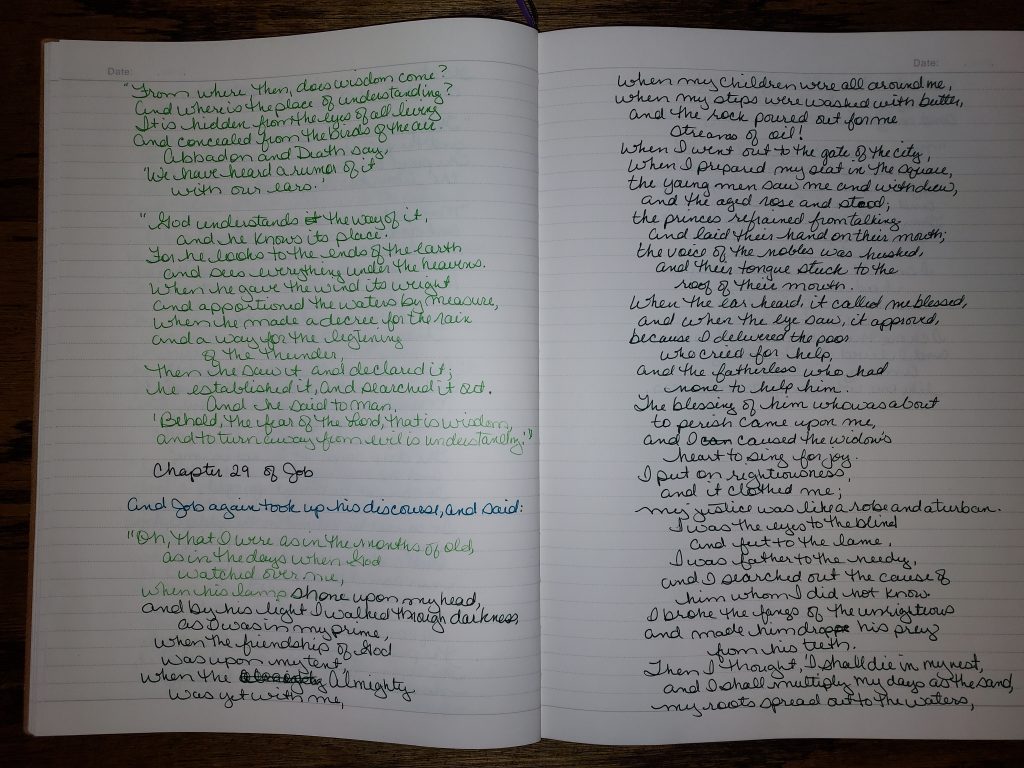 Date:
"From where, then, does wisdom come?
And where is the place of understanding?
It is hidden from the eyes of all living
and concealed from the birds of the air.
Abbadon and Death say,
'We have heard a rumor of it
with our ears.'
"God understands it the way of it,
and he knows its place.
For he looks to the ends of the earth
and sees everything under the heavens.
When he gave the wind its weight
and apportioned the waters by measure,
when he made a decree for the rain
and a way for the lightning
of the thunder,
then he saw it and declared it;
he established it, and searched it out.
And he said to man,
'Behold, the fear of the Lord, that is wisdom,
and to turn away from evil is understanding.'"
Chapter 29 of Job
And Job again took up his discourse, and said:
"Oh, that I were as in the months of old,
as in the days when God
watched over me,
when his lamp shone upon my head,
and by his light I walked through darkness,
as I was in my prime,
when the friendship of God
was upon my tent,
when the Almighty
was yet with me,
Date:
when my children were all around me,
when my steps were washed with butter,
and the rock poured out for me
streams of oil!
When I went out to the gate of the city,
when I prepared my seat in the square,
the young men saw me and withdrew,
and the aged rose and stood;
the princes refrained from talking
and laid their hand on their mouth;
the voice of the nobles was hushed,
and their tongue stuck to the
roof of their mouth.
When the ear heard, it called me blessed,
and when the eye saw, it approved,
because I delivered the poor
who cried for help,
and the fatherless who had
none to help him.
The blessing of him who was about
to perish came upon me,
and I caused the widow's
heart to sing for joy.
I put on rightiousness,
and it clothed me;
my justice was like a robe and a turban.
I was the eyes to the blind
and feet to the lame,
I was father to the needy,
and I searched out the cause of
him whom I did not know.
I broke the fangs of the unrightious
and made him drop his prey
from his teeth.
Then I thought, 'I shall die in my nest,
and I shall multiply my days as the sand,
my roots spread out to the waters,